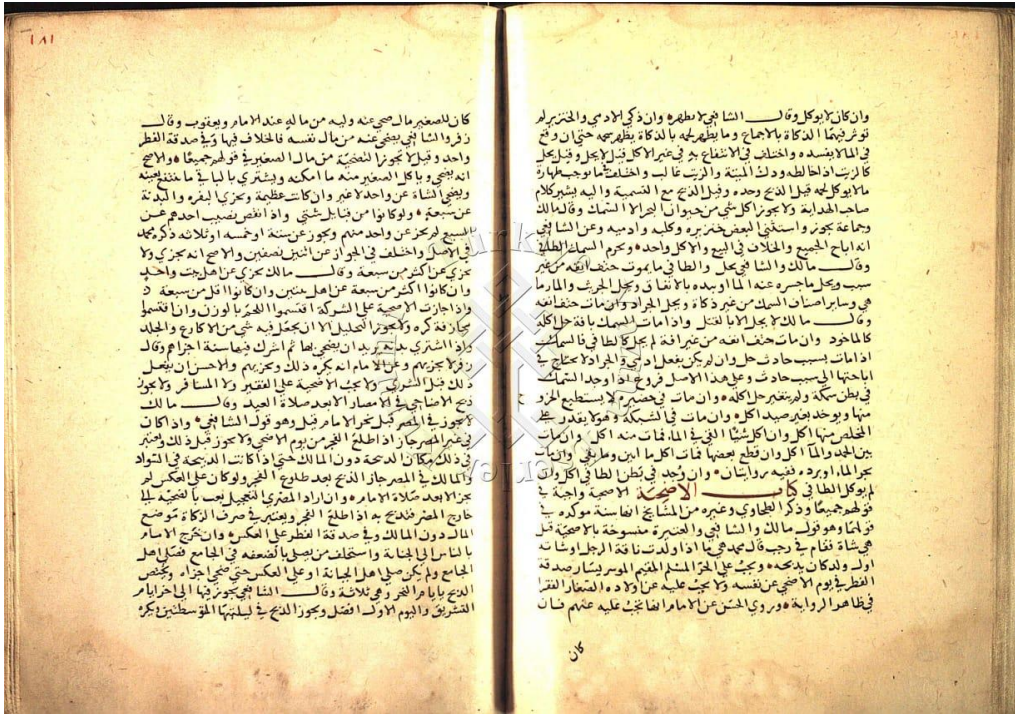 وان كان لا يوكل وقال الشافعي لا يطهره وان ذكي الادمي والخنزير لم
توثر فيهما الذكاة بالاجماع وما يطهر لحمه بالذكاة يطهر شحمه حتي ان وقع
في الما لا يفسده واختلف في الانتفاع به في غير الاكل قيل لا يحل وقيل يحل
كالزيت اذا خالطه ودك الميتة والزيت غالب واختلف فيما يوجب طهارة
ما لا يوكل لحمه قيل الذبح وحده وقيل الذبح مع التسمية واليه يشير كلام
صاحب الهداية ولا يجوز اكل شي من حيوان البحر الا السمك وقال مالك
وجماعة يجوز واستثني البعض خنزيره وكلبه وادميه وعن الشافعي
انه اباح الجميع والخلاف في البيع والاكل واحد ويحرم السمك الطافي
وقال مالك والشافعي يحل والطافي ما يموت حتف انفه من غير
سبب ويحل ما جسره عنه الما او نبذه بالاتفاق ويحل الجريث والمارما
هي وساير اصناف السمك من غير ذكاة ويحل الجراد وان مات حتف انفه
وقال مالك لا يحل الا بالقتل واذا مات السمك بافة حل اكله
كالماخوذ وان مات حتف انفه من غير افة لم يحل كالطافي فالسمك
اذا مات بسبب حادث حل وان لم يكن بفعل ادمي والجراد لا يحتاج في
اباحتها الي سبب حادث وعلي هذا الاصل فروع اذا وجد السمك
في بطن سمكة ولم يتغير حل اكله وان مات في حضيرة لا يستطيع الخرو
منها ويوخذ بغير صيد اكل وان مات في الشبكة وهو لا يقدر علي
المخلص منها اكل وان اكل شيئا القي في الما فمات منه اكل وان مات
بين الجمد والما اكل وان قطع بعضها فمات اكل ما ابين وما بقي وان مات
بحر الما او برده ففيه روايتان وان وجد في بطن الطافي اكل وان
لم يوكل الطافي كتاب الاضحية الاضحية واجبة في
قولهم جميعا وذكر الطحاوي وغيره من المشايخ انها سنة موكده في
قولهما وهو قول مالك والشافعي والعتيرة منسوخة بالاضحية قيل
هي شاة تقام في رجب قال محمد هي ما اذا ولدت ناقة الرجل او شاته
اول ولد كان يذبحه ويجب علي الحر المسلم المقيم الموسر يسار صدقة
الفطر في يوم الاضحي عن نفسه ولا يجب عليه عن اولاده الصغار الفقرا
في ظاهر الرواية وروي الحسن عن الامام انها تجب عليه عنهم فان
كان
١٨١
كان للصغير مال ضحي عنه وليه من ماله عند الامام ويعقوب وقال
زفر والشافعي يضحي عنه من مال نفسه فالخلاف فيها وفي صدقة الفطر
واحد وقيل لا يجوز التضحية من مال الصغير في قولهم جميعا والاصح
انه يضحي وياكل الصغير منه ما امكنه ويشتري بالباقي ما ينتفع بعينه
ويضحي الشاة عن واحد لا غير وان كانت عظيمة وتجزي البقره والبدنة
عن سبعة ولو كانوا من قبايل شتي واذا نقص نصيب احدهم عن
السبع لم يجز عن واحد منهم ويجوز عن ستة او خمسه او ثلاثه ذكره محمد
في الاصل واختلف في الجواز عن اثنين نصفين والاصح انه يجزي ولا
يجزي عن اكثر من سبعة وقال مالك يجزي عن اهل بيت واحد
وان كانوا اكثر من سبعة عن اهل بيتين وان كانوا اقل من سبعة
واذا جازت الاضحية علي الشركة اقتسموا اللحم بالوزن وان اقتسموا
مجازفة كره ولا يجوز التحليل الا ان يجعل فيه شي من الاكارع والجلد
واذا اشتري بدنة يريد ان يضحي بها ثم اشرك فيها ستة اجزاهم وقال
زفر لا يجزيهم وعن الامام انه يكره ذلك ويجزيهم والاحسن ان يفعل
ذلك قبل الشري ولا يجب الاضحية علي الفقير ولا المسافر ولا يجوز
ذبح الاضاحي في الامصار الا بعد صلاة العيد وقال مالك
لا يجوز في المصر قبل نحر الامام قيل وهو قول الشافعي واذا كان
في غير المصر جاز اذا طلع الفجر من يوم الاضحي ولا يجوز قبل ذلك ويعتبر
في ذلك مكان الذبيحة دون المالك حتي اذا كانت الذبيحة في السواد
والمالك في المصر جاز الذبح بعد طلوع الفجر ولو كان علي العكس لم
يجز الا بعد صلاة الامام وان اراد المصري التعجيل بعث بالضحية الي
خارج المصر فتذبح به اذا طلع الفجر ويعتبر في صرف الزكاة موضع
المال دون المالك وفي صدقة الفطر علي العكس وان خرج الامام
بالناس الي الجبانة واستخلف من يصلي بالضعفه في الجامع فصلي اهل
الجامع ولم يكن صلي اهل الجبانة او علي العكس حتي ضحي اجزاه ويختص
الذبح بايام النحر وهي ثلاثة وقال الشافعي يجوز فيها الي اخر ايام
التشريق واليوم الاول افضل ويجوز الذبح في ليلتيها المتوسطتين ويكره